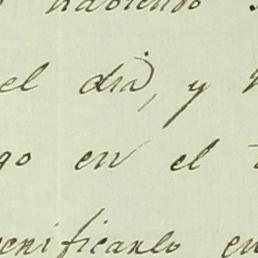 habiendo
el dia, y
go en el
verificarlo en